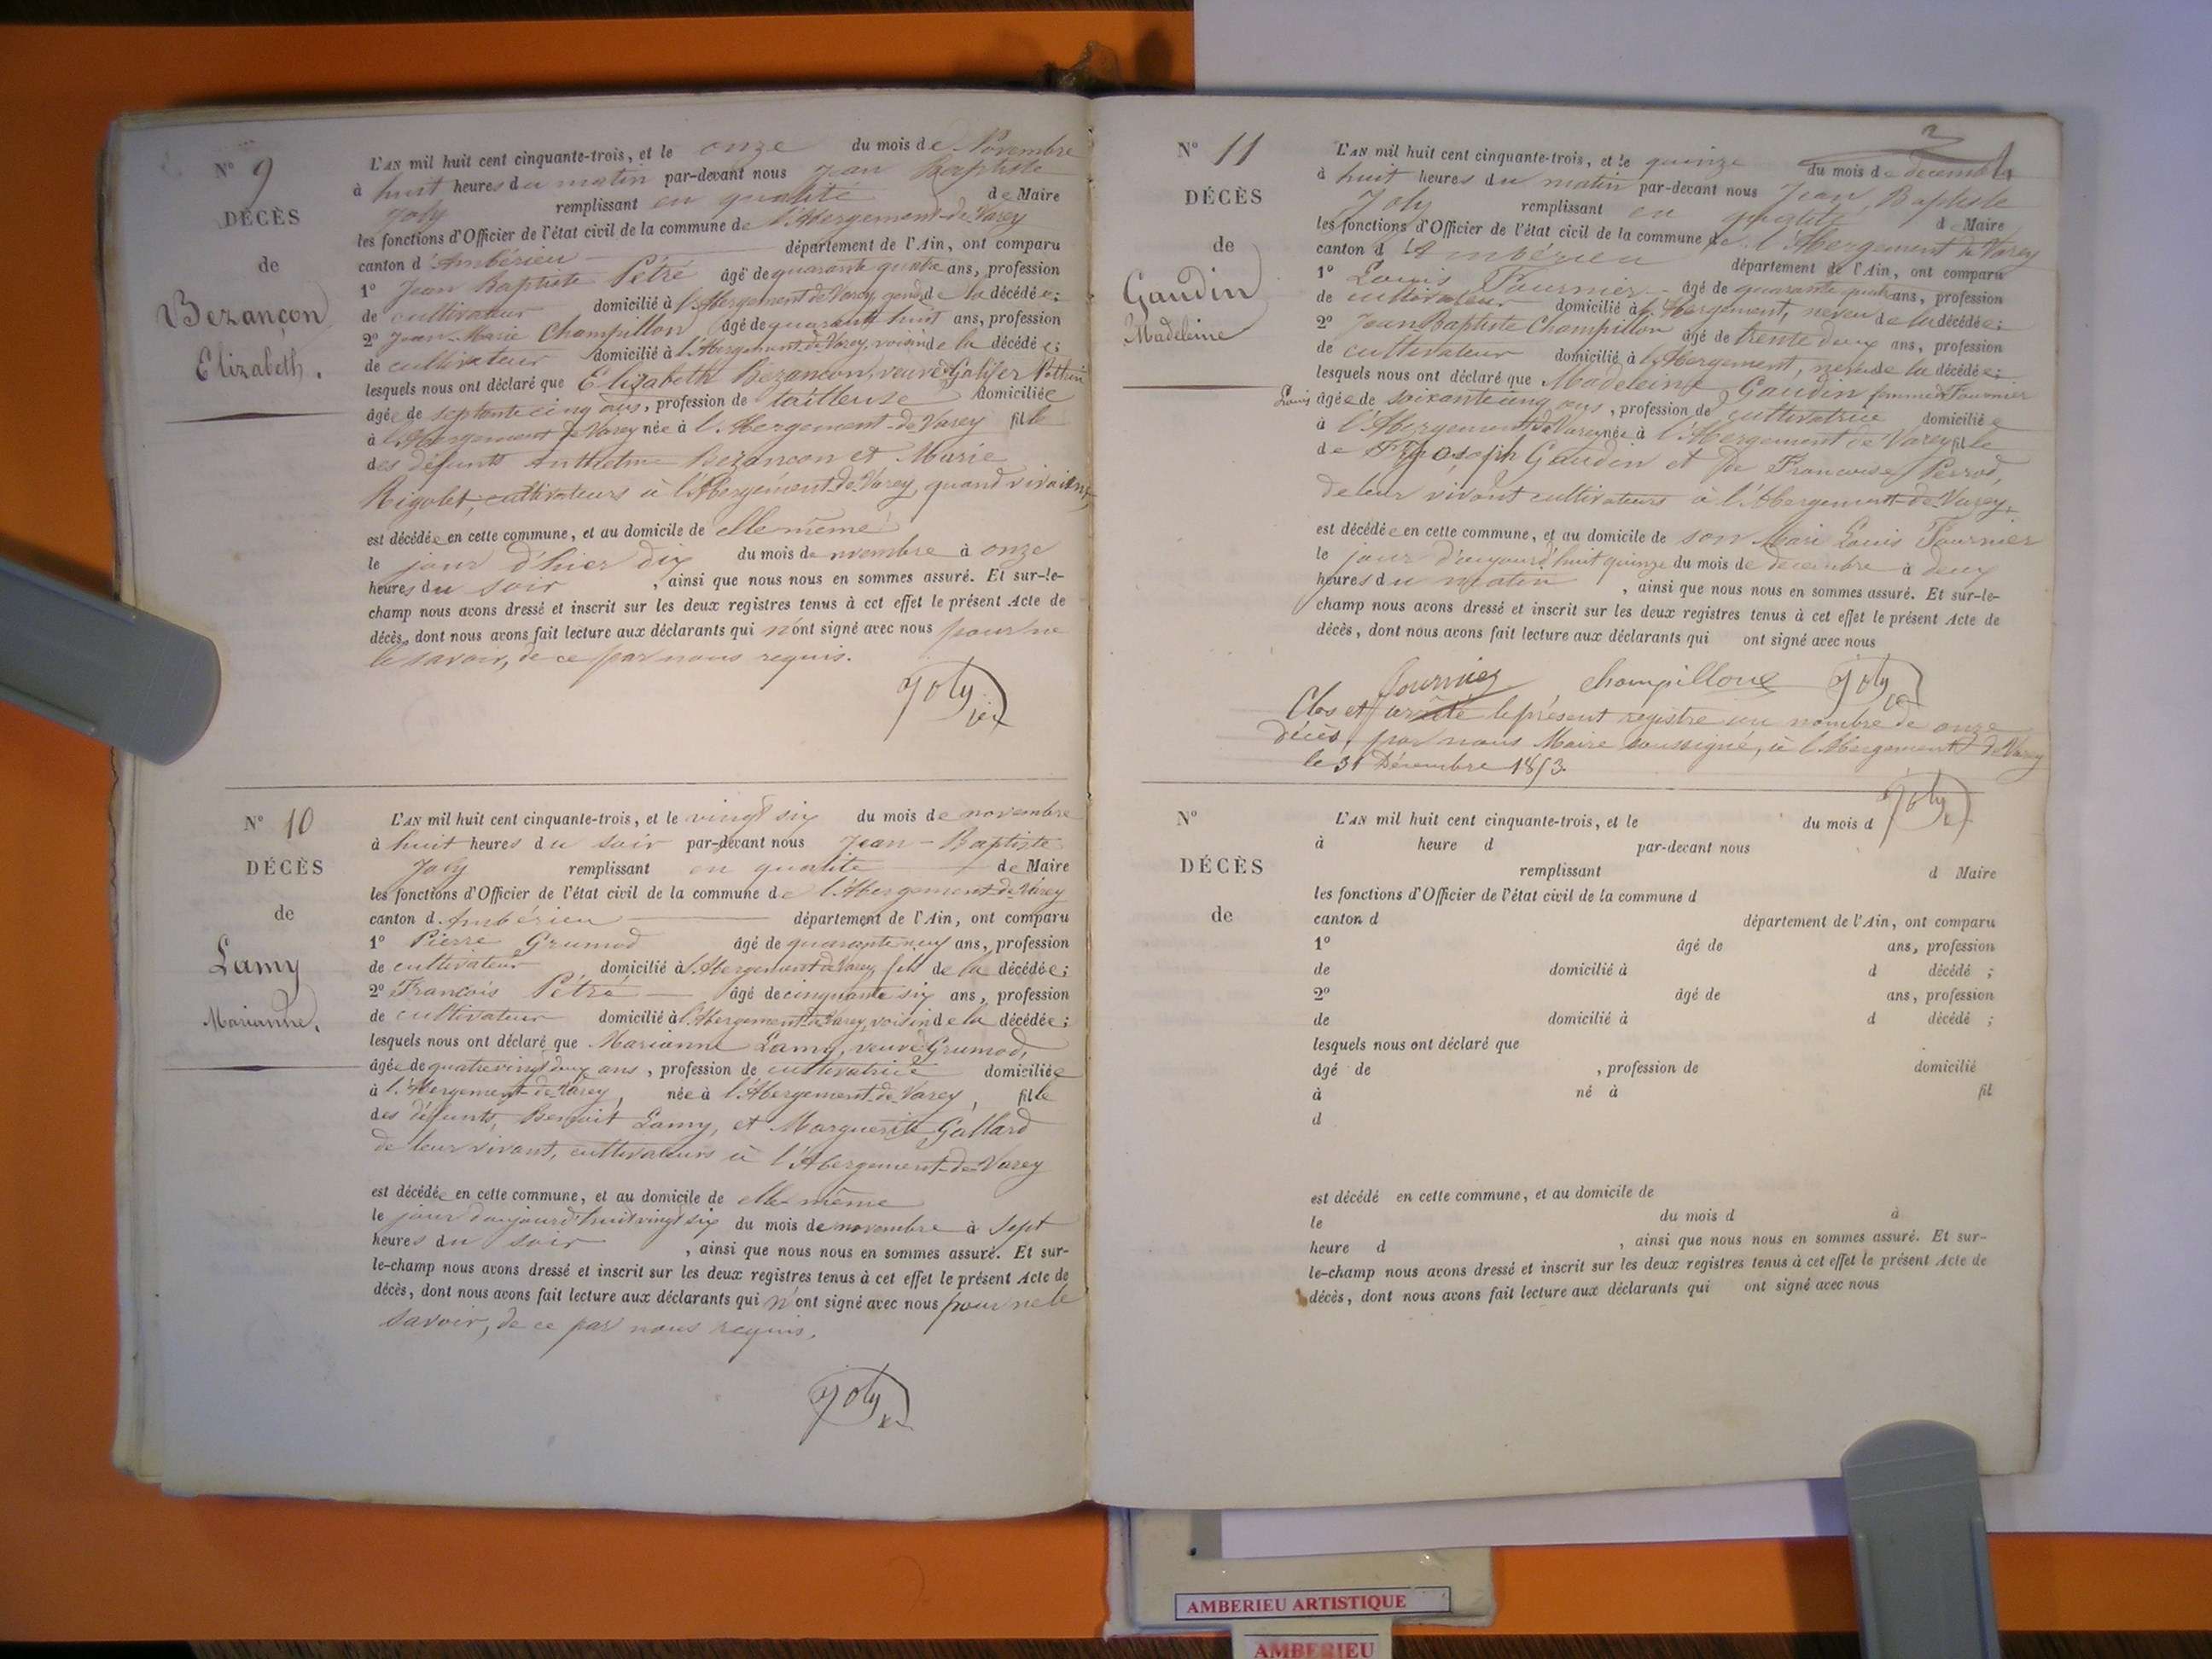 N° 9
DÉCÈS
de
Bezançon
Elizabeth.
L'AN mil huit cent cinquante-trois, et le onze du mois de Novembre
à huit heures du matin par-devant nous Jean Baptiste
Joly remplissant en qualité de Maire
les fonctions d'Officier de l'état civil de la commune de l'Abergement-de-Varey
canton d'Ambérieu département de l'Ain, ont comparu
1° Jean Baptiste Pétré âgé de quarante quatre ans, profession
de cultivateur domicilié à l'Abergement de Varey, gendre de la décédée;
2° Jean-Marie Champillon âgé de quarante huit ans, profession
de cultivateur domicilié à l'Abergement-de-Varey, voisin de la décédée;
lesquels nous ont déclaré que Elizabeth Bezancon, veuve
âgée de septante cinq ans, profession de tailleuse domiciliée
à l'Abergement de Varey née à l'Abergement-de-Varey fille
des défunts Anthelme Bezancon et Marie
Rigolet, cultivateurs à l'Abergement-de-Varey, quand vivaient,
est décédée en cette commune, et au domicile de elle même
le jour d'hier dix du mois de novembre à onze
heures du soir, ainsi que nous nous en sommes assuré. Et sur-le-
champ nous avons dressé et inscrit sur les deux registres tenus à cet effet le présent Acte de
décès, dont nous avons fait lecture aux déclarants qui n'ont signé avec nous pour ne
le savoir, de ce par nous requis.
Joly
N° 10
DÉCÈS
de
Lamy
Marianne.
L'AN mil huit cent cinquante-trois, et le vingt six du mois de novembre
à huit heures du soir par-devant nous Jean-Baptiste
Joly remplissant en qualité de Maire
les fonctions d'Officier de l'état civil de la commune de l'Abergement-de-Varey
canton d'Ambérieu département de l'Ain, ont comparu
1° Pierre Grumod âgé de quarante neuf ans, profession
de cultivateur domicilié à l'Abergement de Varey, fils de la décédée;
2° Francois Pétré âgé de cinquante six ans, profession
de cultivateur domicilié à l'Abergement de Varey, voisin de la décédée;
lesquels nous ont déclaré que Marianne Lamy, veuve Grumod,
âgée de quatre vingt deux ans, profession de cultivatrice domiciliée
à l'Abergement-de-Varey, née à l'Abergement-de-Varey, fille
des défunts, Benoit Lamy, et Marguerite Gallard
de leur vivant, cultivateurs à l'Abergement-de-Varey
est décédée en cette commune, et au domicile de elle-même
le jour d'aujourd'huit vingt six du mois de novembre à Sept
heures du soir, ainsi que nous nous en sommes assuré. Et sur-
le-champ nous avons dressé et inscrit sur les deux registres tenus à cet effet le présent Acte de
décès, dont nous avons fait lecture aux déclarants qui n'ont signé avec nous pour ne le
savoir, de ce par nous requis.
Joly
N° 11
DÉCÈS
de
Gaudin
Madeleine
L'AN mil huit cent cinquante-trois, et le quinze du mois de décembre
à huit heures du matin par-devant nous Jean Baptiste
Joly remplissant en qualité d Maire
les fonctions d'Officier de l'état civil de la commune de l'Abergement de Varey
canton d'Ambérieu département de l'Ain, ont comparu
1° Louis Fournier âgé de quarante quatre ans, profession
de cultivateur domicilié à l'Abergement, neveu de la décédée;
2° Jean-Baptiste Champillon âgé de trente deux ans, profession
de cultivateur domicilié à l'Abergement, neveu de la décédée;
lesquels nous ont déclaré que Madeleine Gaudin femme Fournier
Louis âgée de soixante cinq ans, profession de cultivatrice domiciliée
à l'Abergement de Varey née à l'Abergement de Varey fille
de Joseph Gaudin et de Francoise Perrod,
de leur vivant cultivateurs à l'Abergement-de-Varey,
est décédée en cette commune, et au domicile de son Mari Louis Fournier
le jour d'aujourd'huit quinze du mois de décembre à deux
heures du matin, ainsi que nous nous en sommes assuré. Et sur-le-
champ nous avons dressé et inscrit sur les deux registres tenus à cet effet le présent Acte de
décès, dont nous avons fait lecture aux déclarants qui ont signé avec nous
fournier champillon Joly
Clos et arrêté le présent registre au nombre de onze
décès, par nous Maire soussigné, à l'Abergement de Varey
le 31 Décembre 1853.
Joly
N°
DÉCÈS
de
L'AN mil huit cent cinquante-trois, et le du mois d
à heure d par-devant nous
remplissant d Maire
les fonctions d'Officier de l'état civil de la commune d
canton d département de l'Ain, ont comparu
1° âgé de ans, profession
de domicilié à d décédé ;
2° âgé de ans, profession
de domicilié à d décédé ;
lesquels nous ont déclaré que
âgé de , profession de domicilié
à né à fil
d
est décédé en cette commune, et au domicile de
le du mois d à
heure d , ainsi que nous nous en sommes assuré. Et sur-
le-champ nous avons dressé et inscrit sur les deux registres tenus à cet effet le présent Acte de
décès, dont nous avons fait lecture aux déclarants qui ont signé avec nous
AMBERIEU ARTISTIQUE
AMBERIEU